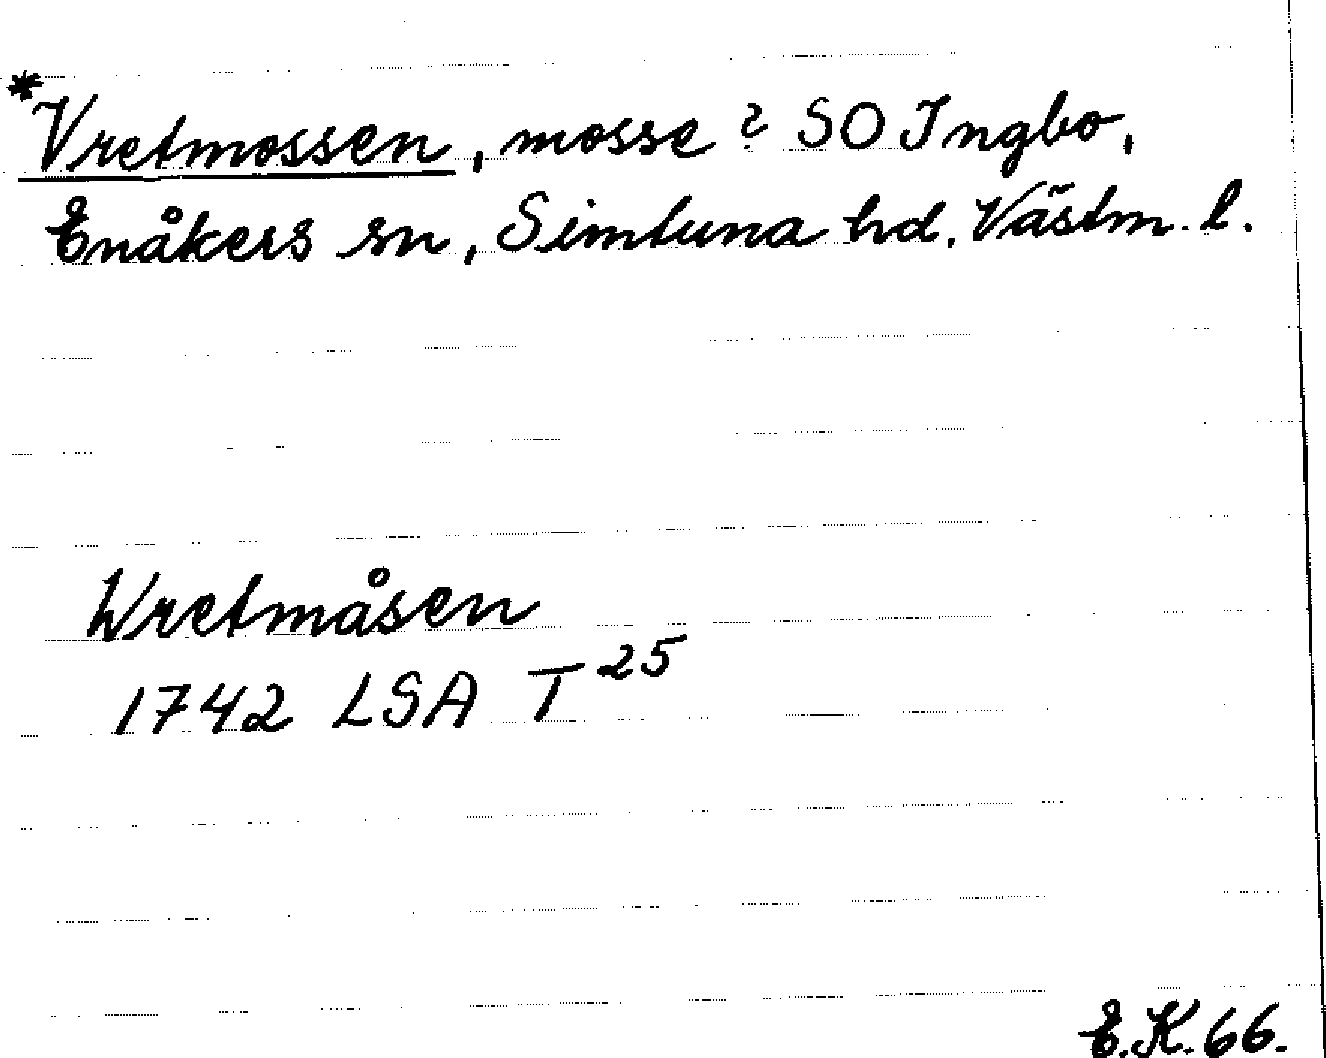 *Vretmossen, mosse? SO Ingbo,
Enåkers sn, Simtuna hd. Västm. l.
Wretmåsen
1742 LSA T 25
E.K. 66.